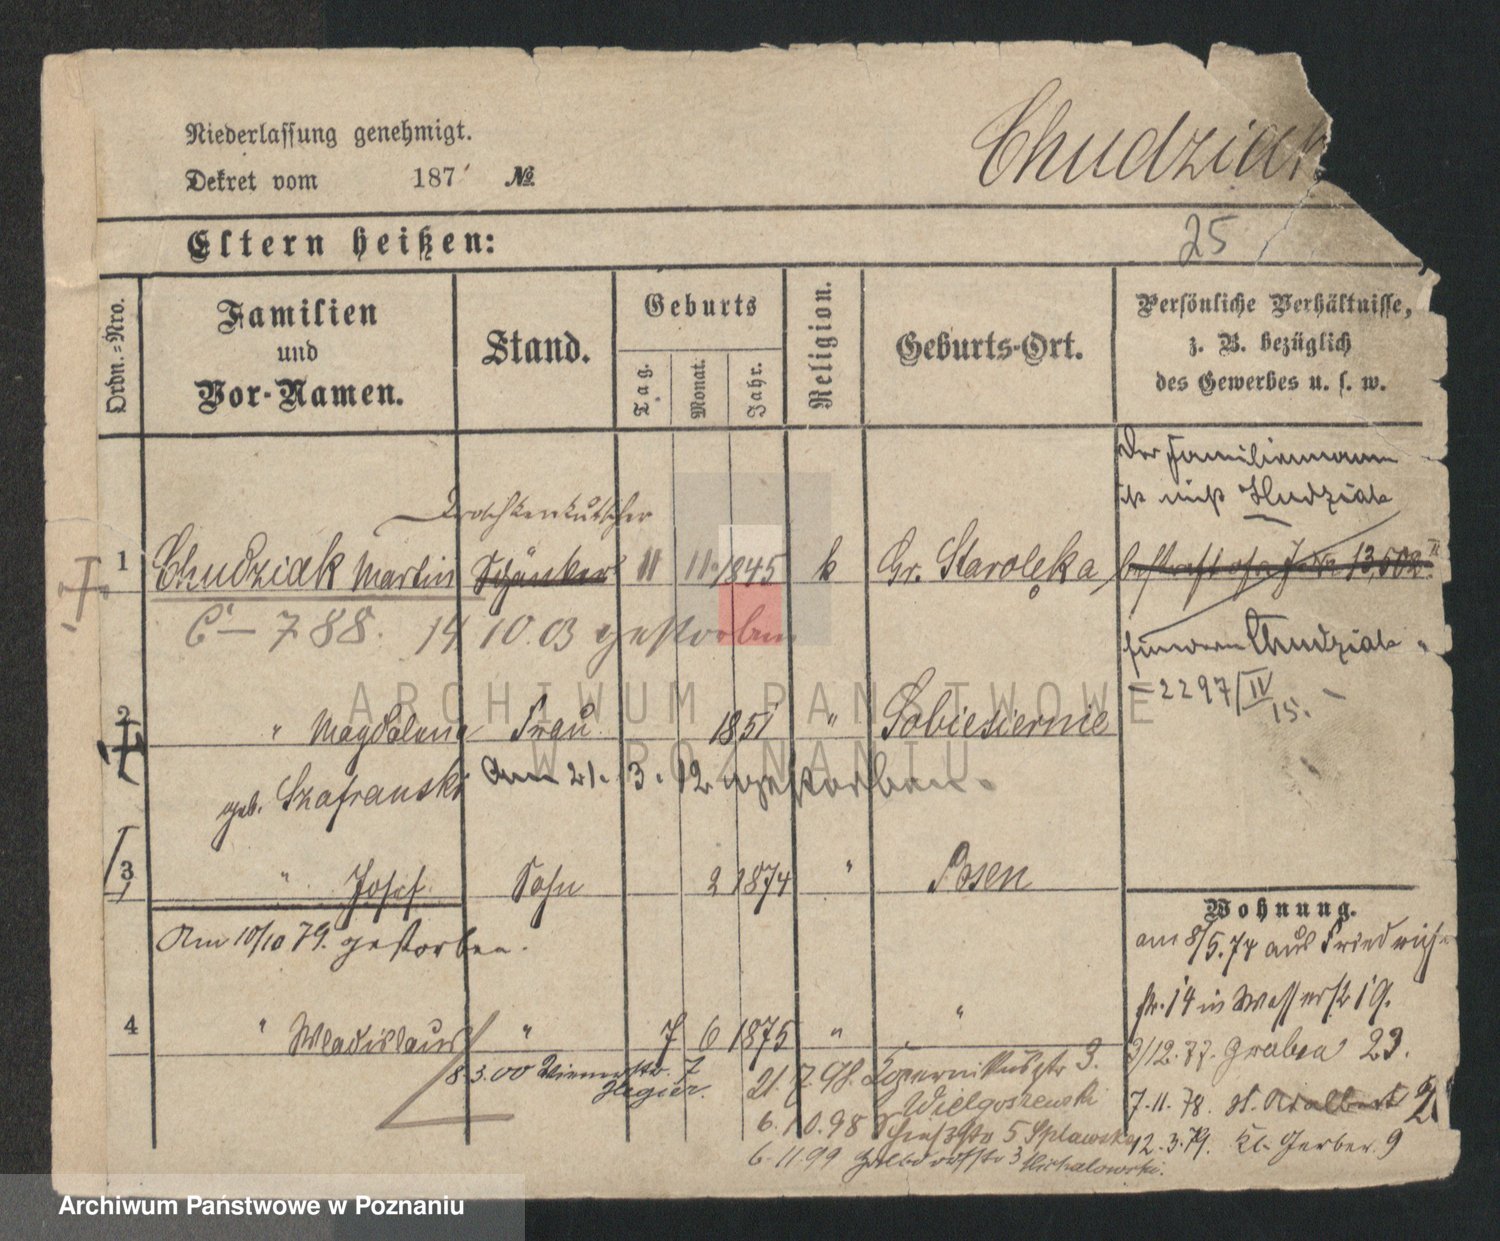 Niederlassung genehmigt.
Dekret vom 187 №
Chudziak
Eltern heißen:
25
Ordn.-Nro.
Familien
und
Vor-Namen.
Stand.
Geburts
Tag.
Monat.
Jahr.
Religion.
Geburts-Ort.
Persönliche Verhältnisse,
z. B. bezüglich
des Gewerbes u. s. w.
Der Familienname
ist nicht Hudziak
Droschkenkutscher
1 Chudziak Martin Schänker 11 11. 1845 k Gr. Starolęka
13,502
C - 788. 14 10.03 gestorben
sondern Chudziak.
- 2297/IV 15. -
2 " Magdalena Frau 1851 " Sobiesiernie
geb. Szafranski Am 21. 3. 12 gestorben.
3 " Josef Sohn 2 1874 " Posen
Am 10/10 79. gestorben.
Wohnung.
am 8/5.74 aus Friedrich-
str. 14 in Wasserstr 19.
4 " Wladislaus " 7 6 1875 " "
3/12.77. Graben 23.
8.3.00 Wienerstr. 7
Hegier.
21.7.98. Kopernikusstr 3.
Wielgoszewski
7.11.78. St. Adalbert 2
6.10.98 Schießstr 5 Splawska
12.3.79. Kl. Gerber. 9
6.11.99 3 Michalowski.
ARCHIWUM PAŃSTWOWE
W POZNANIU
Archiwum Państwowe w Poznaniu